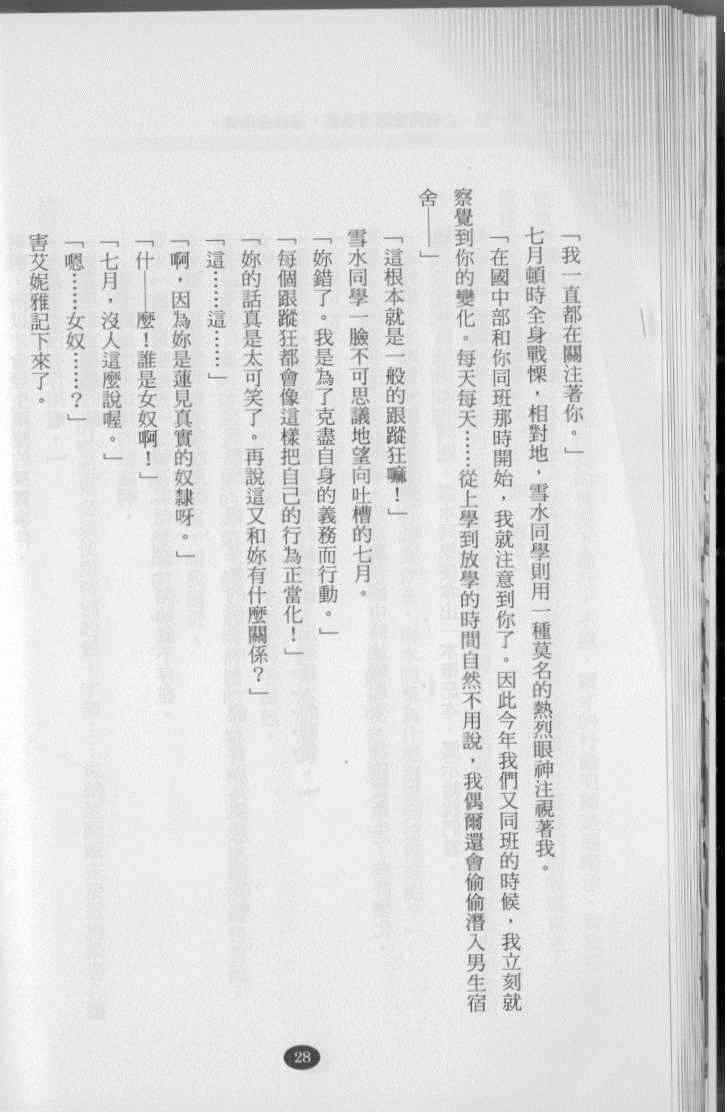 「我一直都在關注著你。」
七月頓時全身戰慄，相對地，雪水同學則用一種莫名的熱烈眼神注視著我。
「在國中部和你同班那時開始，我就注意到你了。因此今年我們又同班的時候，我立刻就
察覺到你的變化。每天每天……從上學到放學的時間自然不用說，我偶爾還會偷偷潛入男生宿
舍——」
「這根本就是一般的跟蹤狂嘛！」
雪水同學一臉不可思議地望向吐槽的七月。
「妳錯了。我是為了克盡自身的義務而行動。」
「每個跟蹤狂都會像這樣把自己的行為正當化！」
「妳的話真是太可笑了。再說這又和妳有什麼關係？」
「這……這……」
「啊，因為妳是蓮見真實的奴隸呀。」
「什——麼！誰是女奴啊！」
「七月，沒人這麼說喔。」
「嗯……女奴……？」
害艾妮雅記下來了。
28